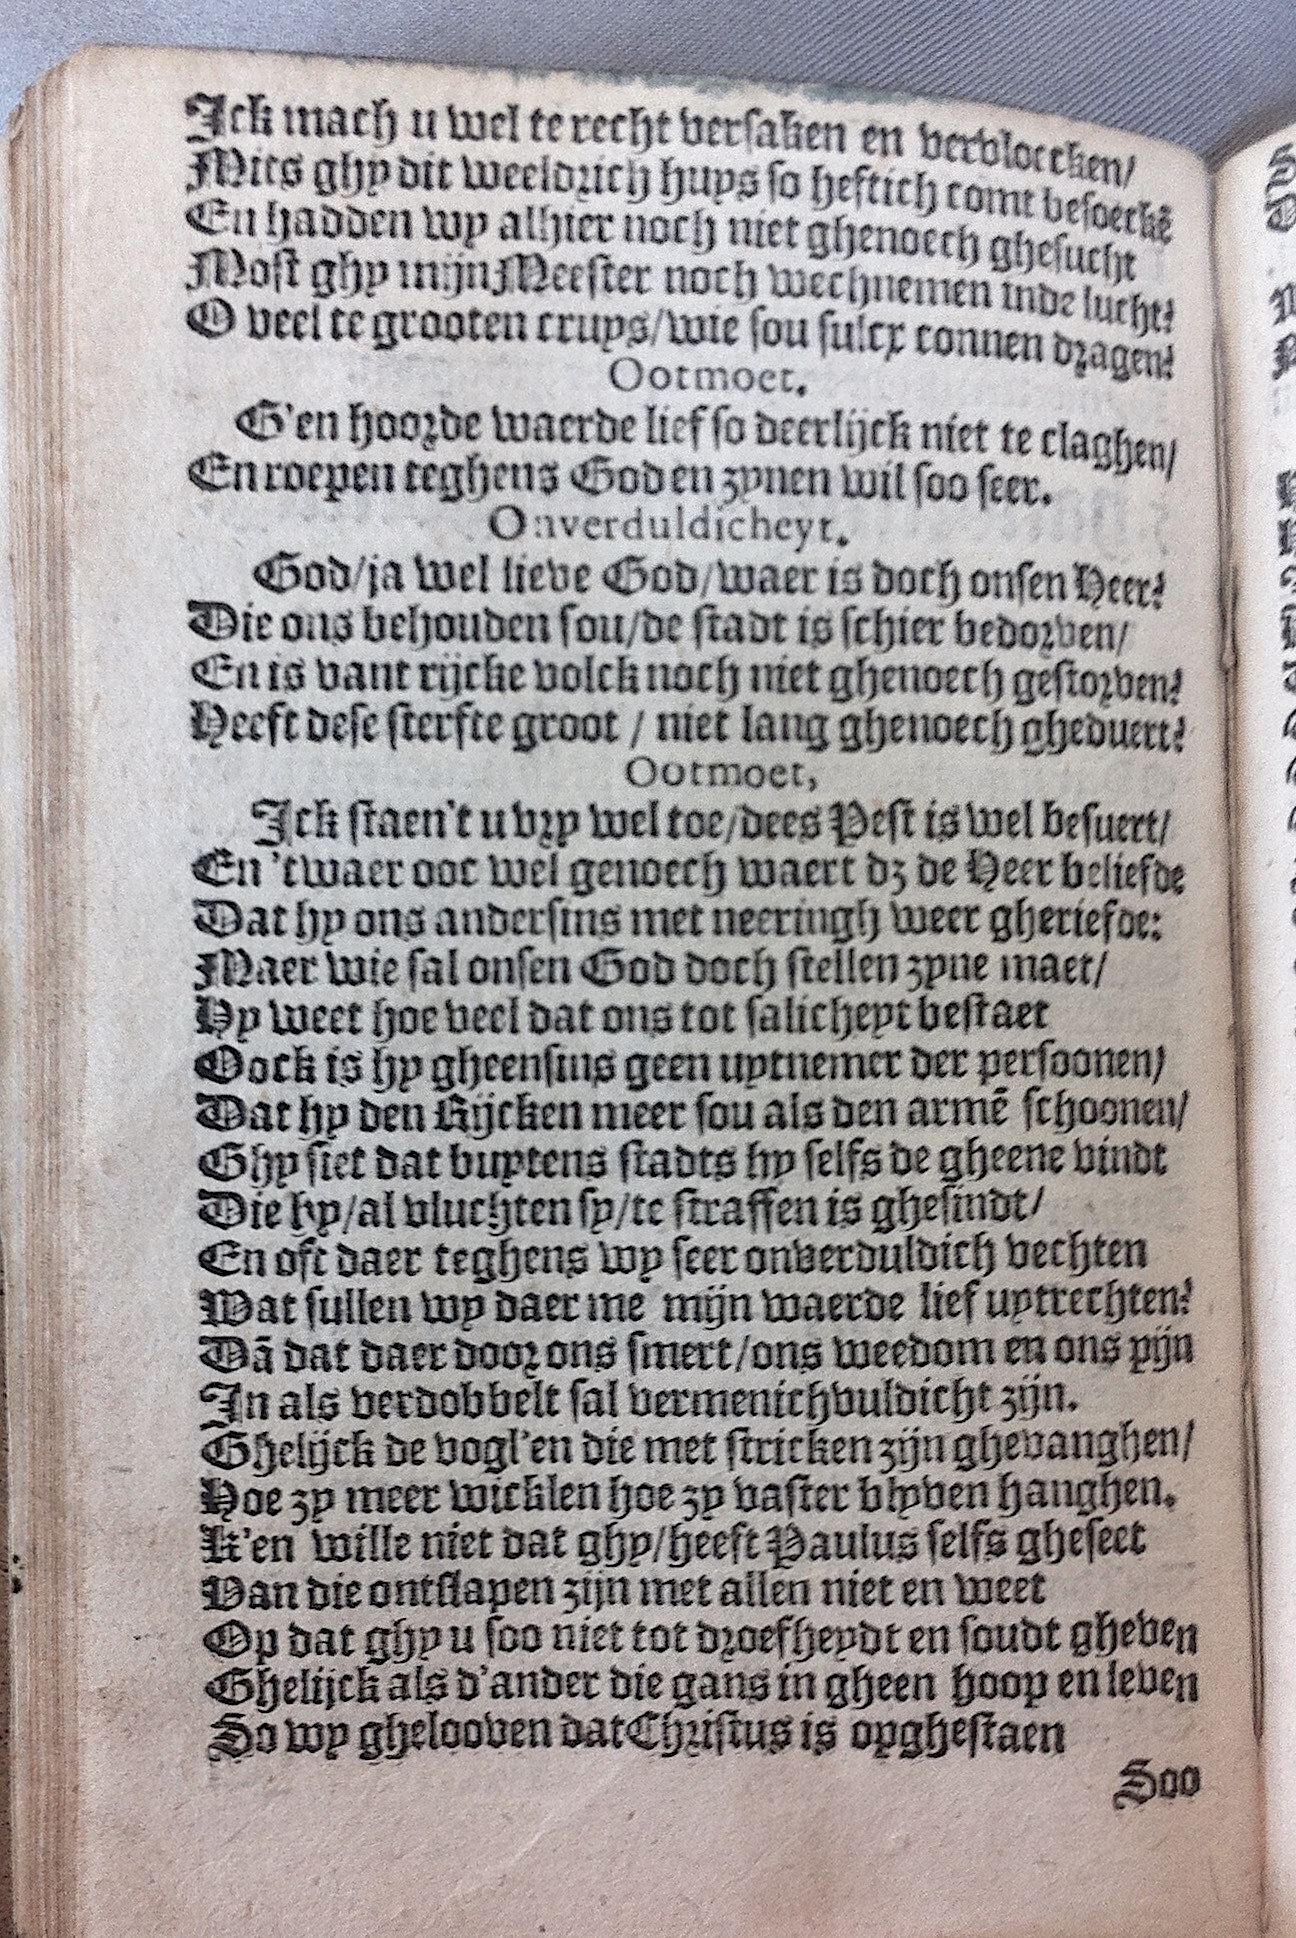 Ick mach u wel te recht versaken en vervloecken/
Mits ghy dit weeldrich huys so heftich comt besoeckē
En hadden wy alhier noch niet ghenoech ghesucht
Most ghy mijn Meester noch wechnemen inde lucht?
O veel te grooten cruys/wie sou sulcx connen dragen?
Ootmoet.
G'en hoorde waerde lief so deerlijck niet te claghen/
En roepen teghens God en zynen wil soo seer.
Onverduldicheyt.
God/ja wel lieve God/waer is doch onsen Heer?
Die ons behouden sou/de stadt is schier bedorven/
En is vant rijcke volck noch niet ghenoech gestorven?
Heeft dese sterfte groot / niet lang ghenoech gheduert?
Ootmoet,
Ick staen't u vry wel toe/dees Pest is wel besuert/
En 'twaer ooc wel genoech waert dz de Heer beliefde
Dat hy ons andersins met neeringh weer gheriefde:
Maer wie sal onsen God doch stellen zyne maet/
Hy weet hoe veel dat ons tot salicheyt bestaet
Oock is hy gheensins geen uytnemer der persoonen/
Dat hy den Rijcken meer sou als den armē schoonen/
Ghy siet dat buytens stadts hy selfs de gheene vindt
Die hy/al vluchten sy/te straffen is ghesindt/
En oft daer teghens wy seer onverduldich vechten
Wat sullen wy daer me mijn waerde lief uytrechten?
Dā dat daer door ons smert/ons weedom en ons pijn
In als verdobbelt sal vermenichvuldicht zijn.
Ghelijck de vogl'en die met stricken zijn ghevanghen/
Hoe zy meer wicklen hoe zy vaster blyven hanghen.
K'en wille niet dat ghy/heeft Paulus selfs gheseet
Van die ontslapen zijn met allen niet en weet
Op dat ghy u soo niet tot droefheydt en soudt gheven
Ghelijck als d'ander die gans in gheen hoop en leven
So wy ghelooven dat Christus is opghestaen
Soo